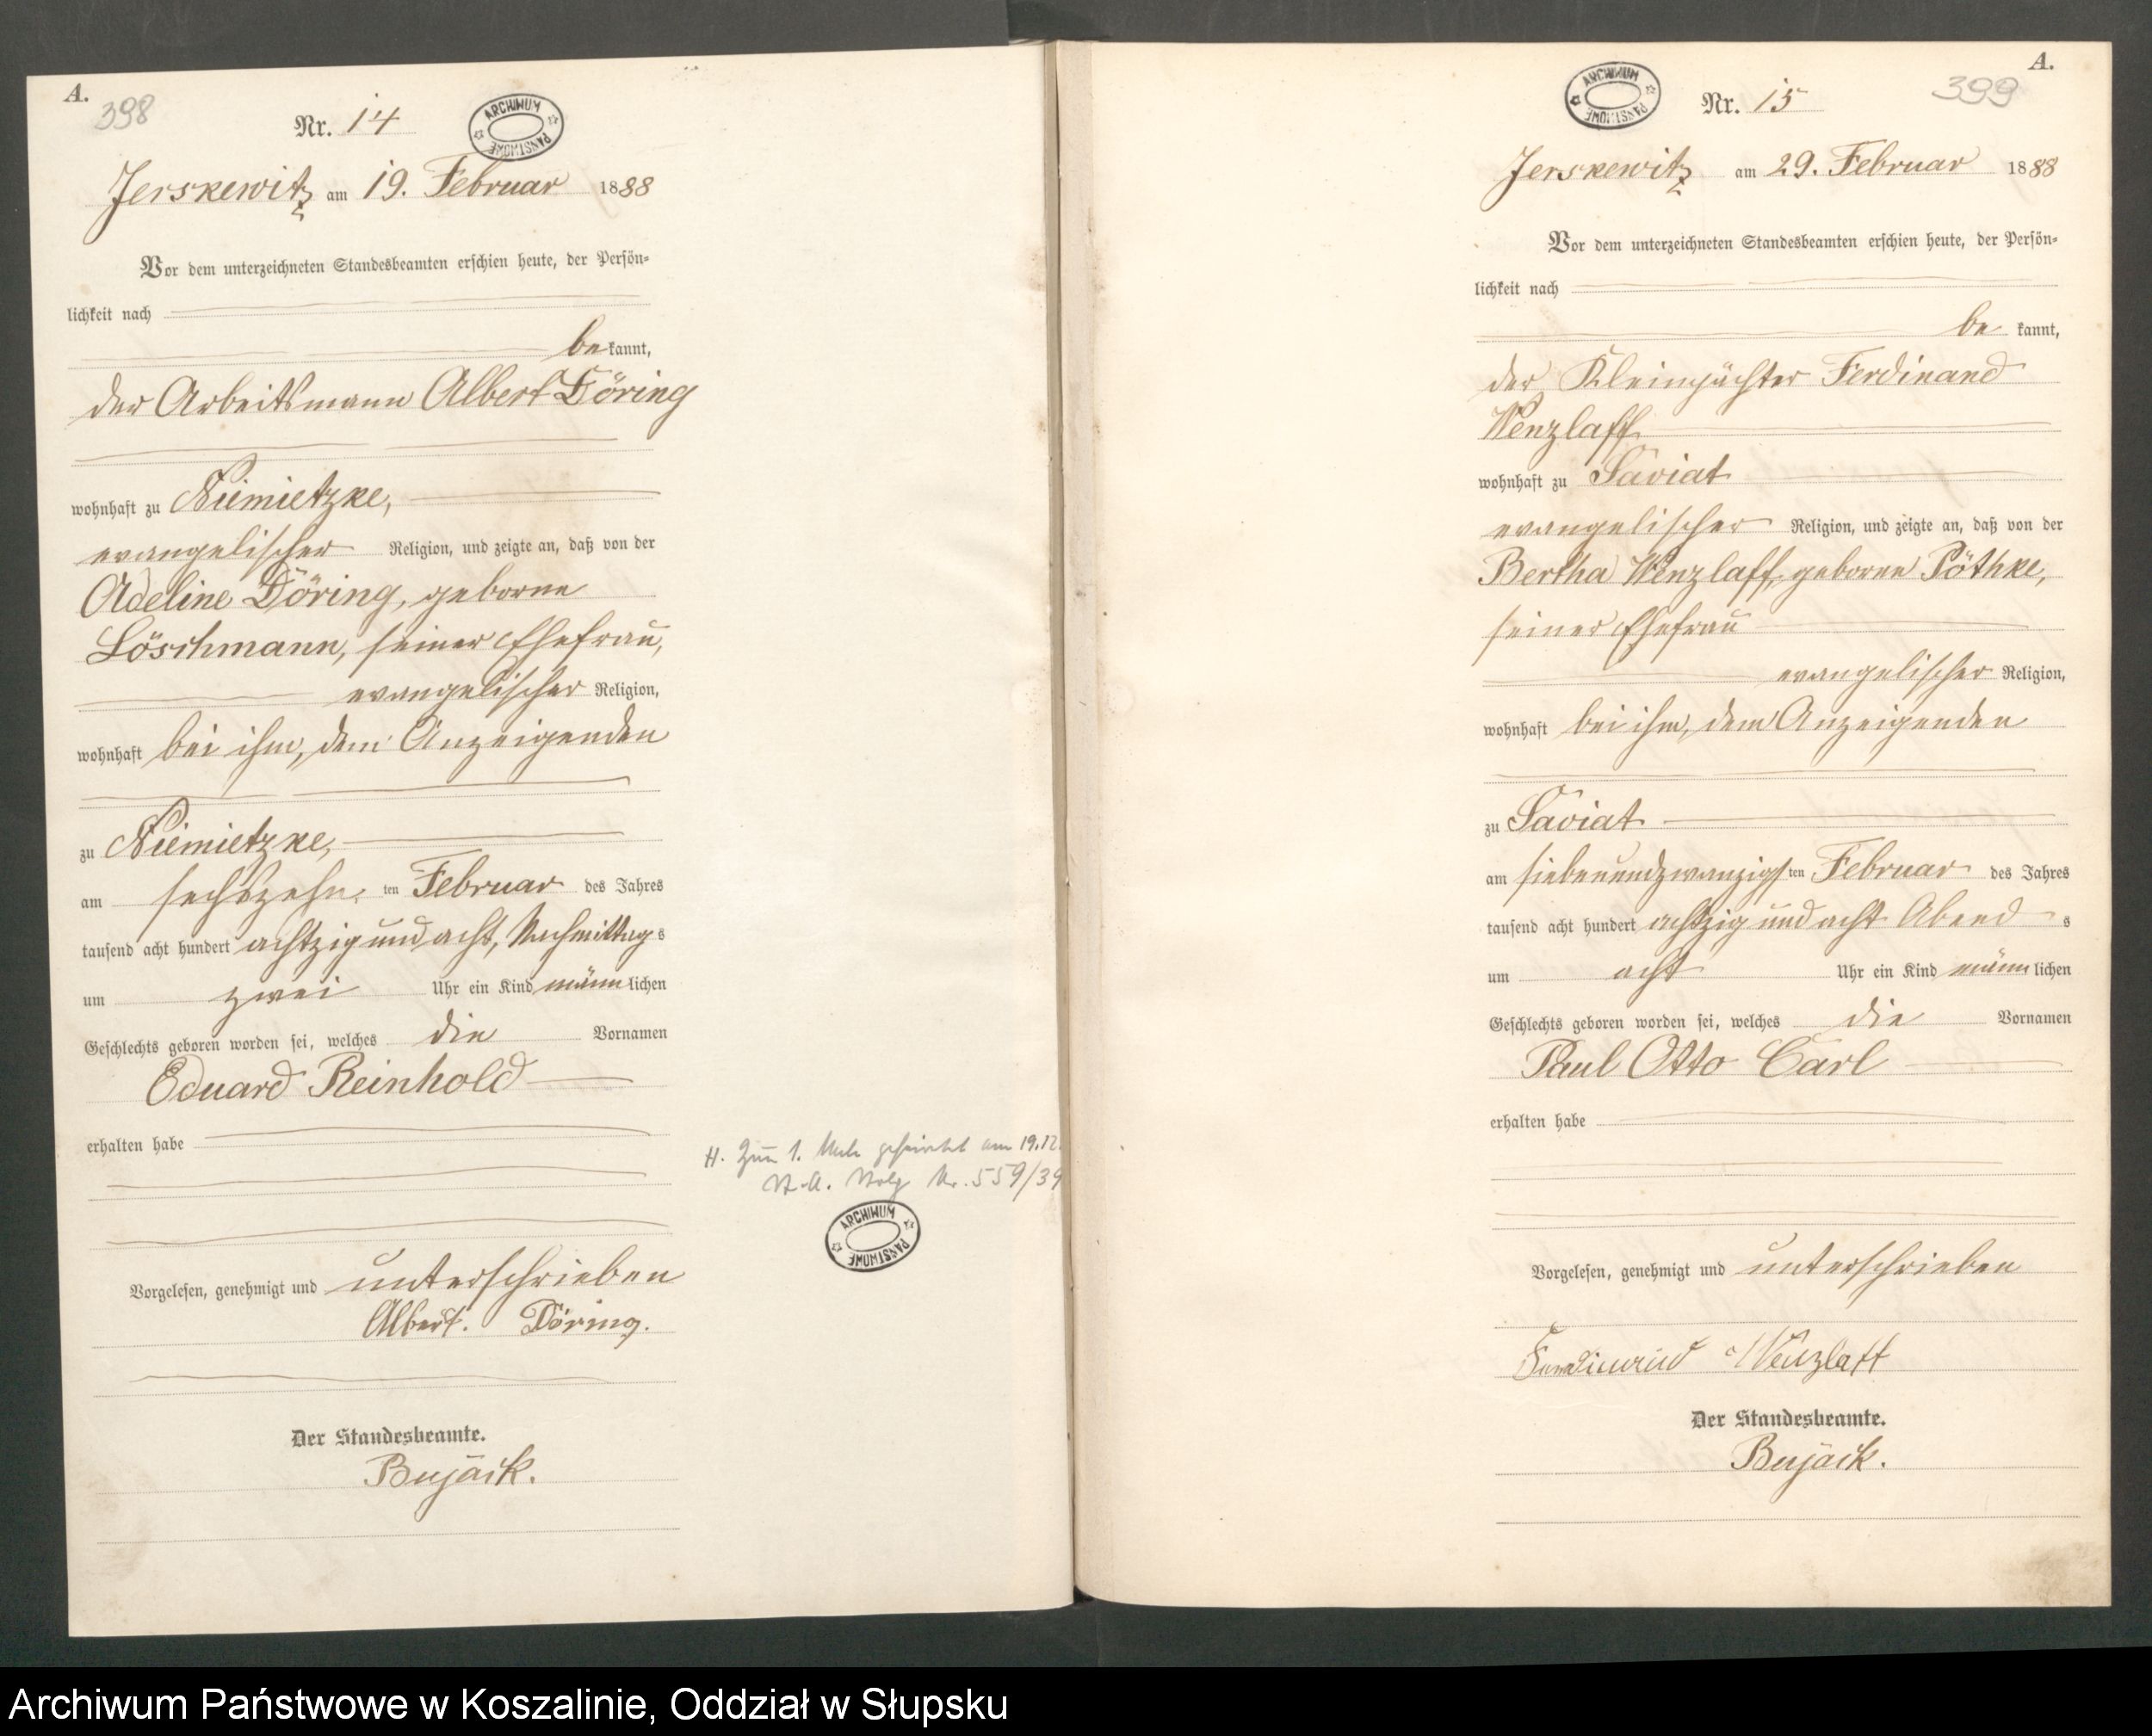 A.
398
Nr. 14
ARCHIWUM PAŃSTWOWE
Jerskewitz am 19. Februar 1888
Vor dem unterzeichneten Standesbeamten erschien heute, der Persön-
lichkeit nach
be kannt,
der Arbeitsmann Albert Döring
wohnhaft zu Niemietzke,
evangelischer Religion, und zeigte an, daß von der
Adeline Döring, geborne
Löschmann, seiner Ehefrau,
evangelischer Religion,
wohnhaft bei ihm, dem Anzeigenden
zu Niemietzke,
am sechszehn ten Februar des Jahres
tausend acht hundert achtzig und acht, Nachmittag s
um zwei Uhr ein Kind männ lichen
Geschlechts geboren worden sei, welches die Vornamen
Eduard Reinhold
erhalten habe
H. Zum 1. Male geheiratet am 19.12.
Nr. 559/39
ARCHIWUM PAŃSTWOWE
Vorgelesen, genehmigt und unterschrieben
Albert Döring.
Der Standesbeamte.
Bujack.
A.
399
ARCHIWUM PAŃSTWOWE
Nr. 15
Jerskewitz am 29. Februar 1888
Vor dem unterzeichneten Standesbeamten erschien heute, der Persön-
lichkeit nach
be kannt,
der Kleinpächter Ferdinand
Wenzlaff
wohnhaft zu Saviat
evangelischer Religion, und zeigte an, daß von der
Bertha Wenzlaff, geborne Pöthke,
seiner Ehefrau
evangelischer Religion,
wohnhaft bei ihm, dem Anzeigenden
zu Saviat
am siebenundzwanzigs ten Februar des Jahres
tausend acht hundert achtzig und acht Abend s
um acht Uhr ein Kind männ lichen
Geschlechts geboren worden sei, welches die Vornamen
Paul Otto Carl
erhalten habe
Vorgelesen, genehmigt und unterschrieben
Ferdinand Wenzlaff
Der Standesbeamte.
Bujack.
Archiwum Państwowe w Koszalinie, Oddział w Słupsku